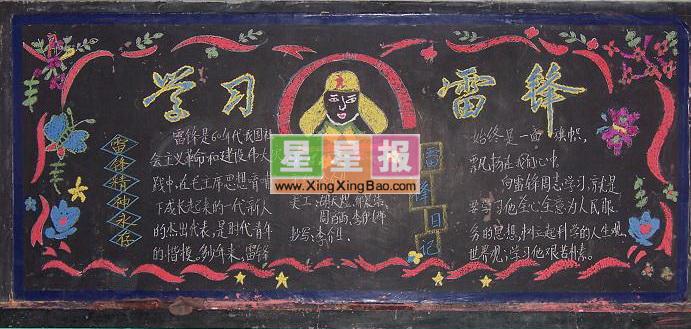 学习
雷锋
雷锋精神永存
雷锋是60年代我国社
会主义革命和建设伟大
践中，在毛主席思想育
下成长起来的一代新人
的杰出代表，是时代青年
的楷模。多少年来，雷锋
星星报
www.XingXingBao.com
美工：
抄写：李
雷锋日记
始终是一面旗帜，
飘扬在我们心中。
向雷锋同志学习，就是
要学习他全心全意为人民服
务的思想，树立起科学的人生观，
世界观；学习他艰苦朴素。